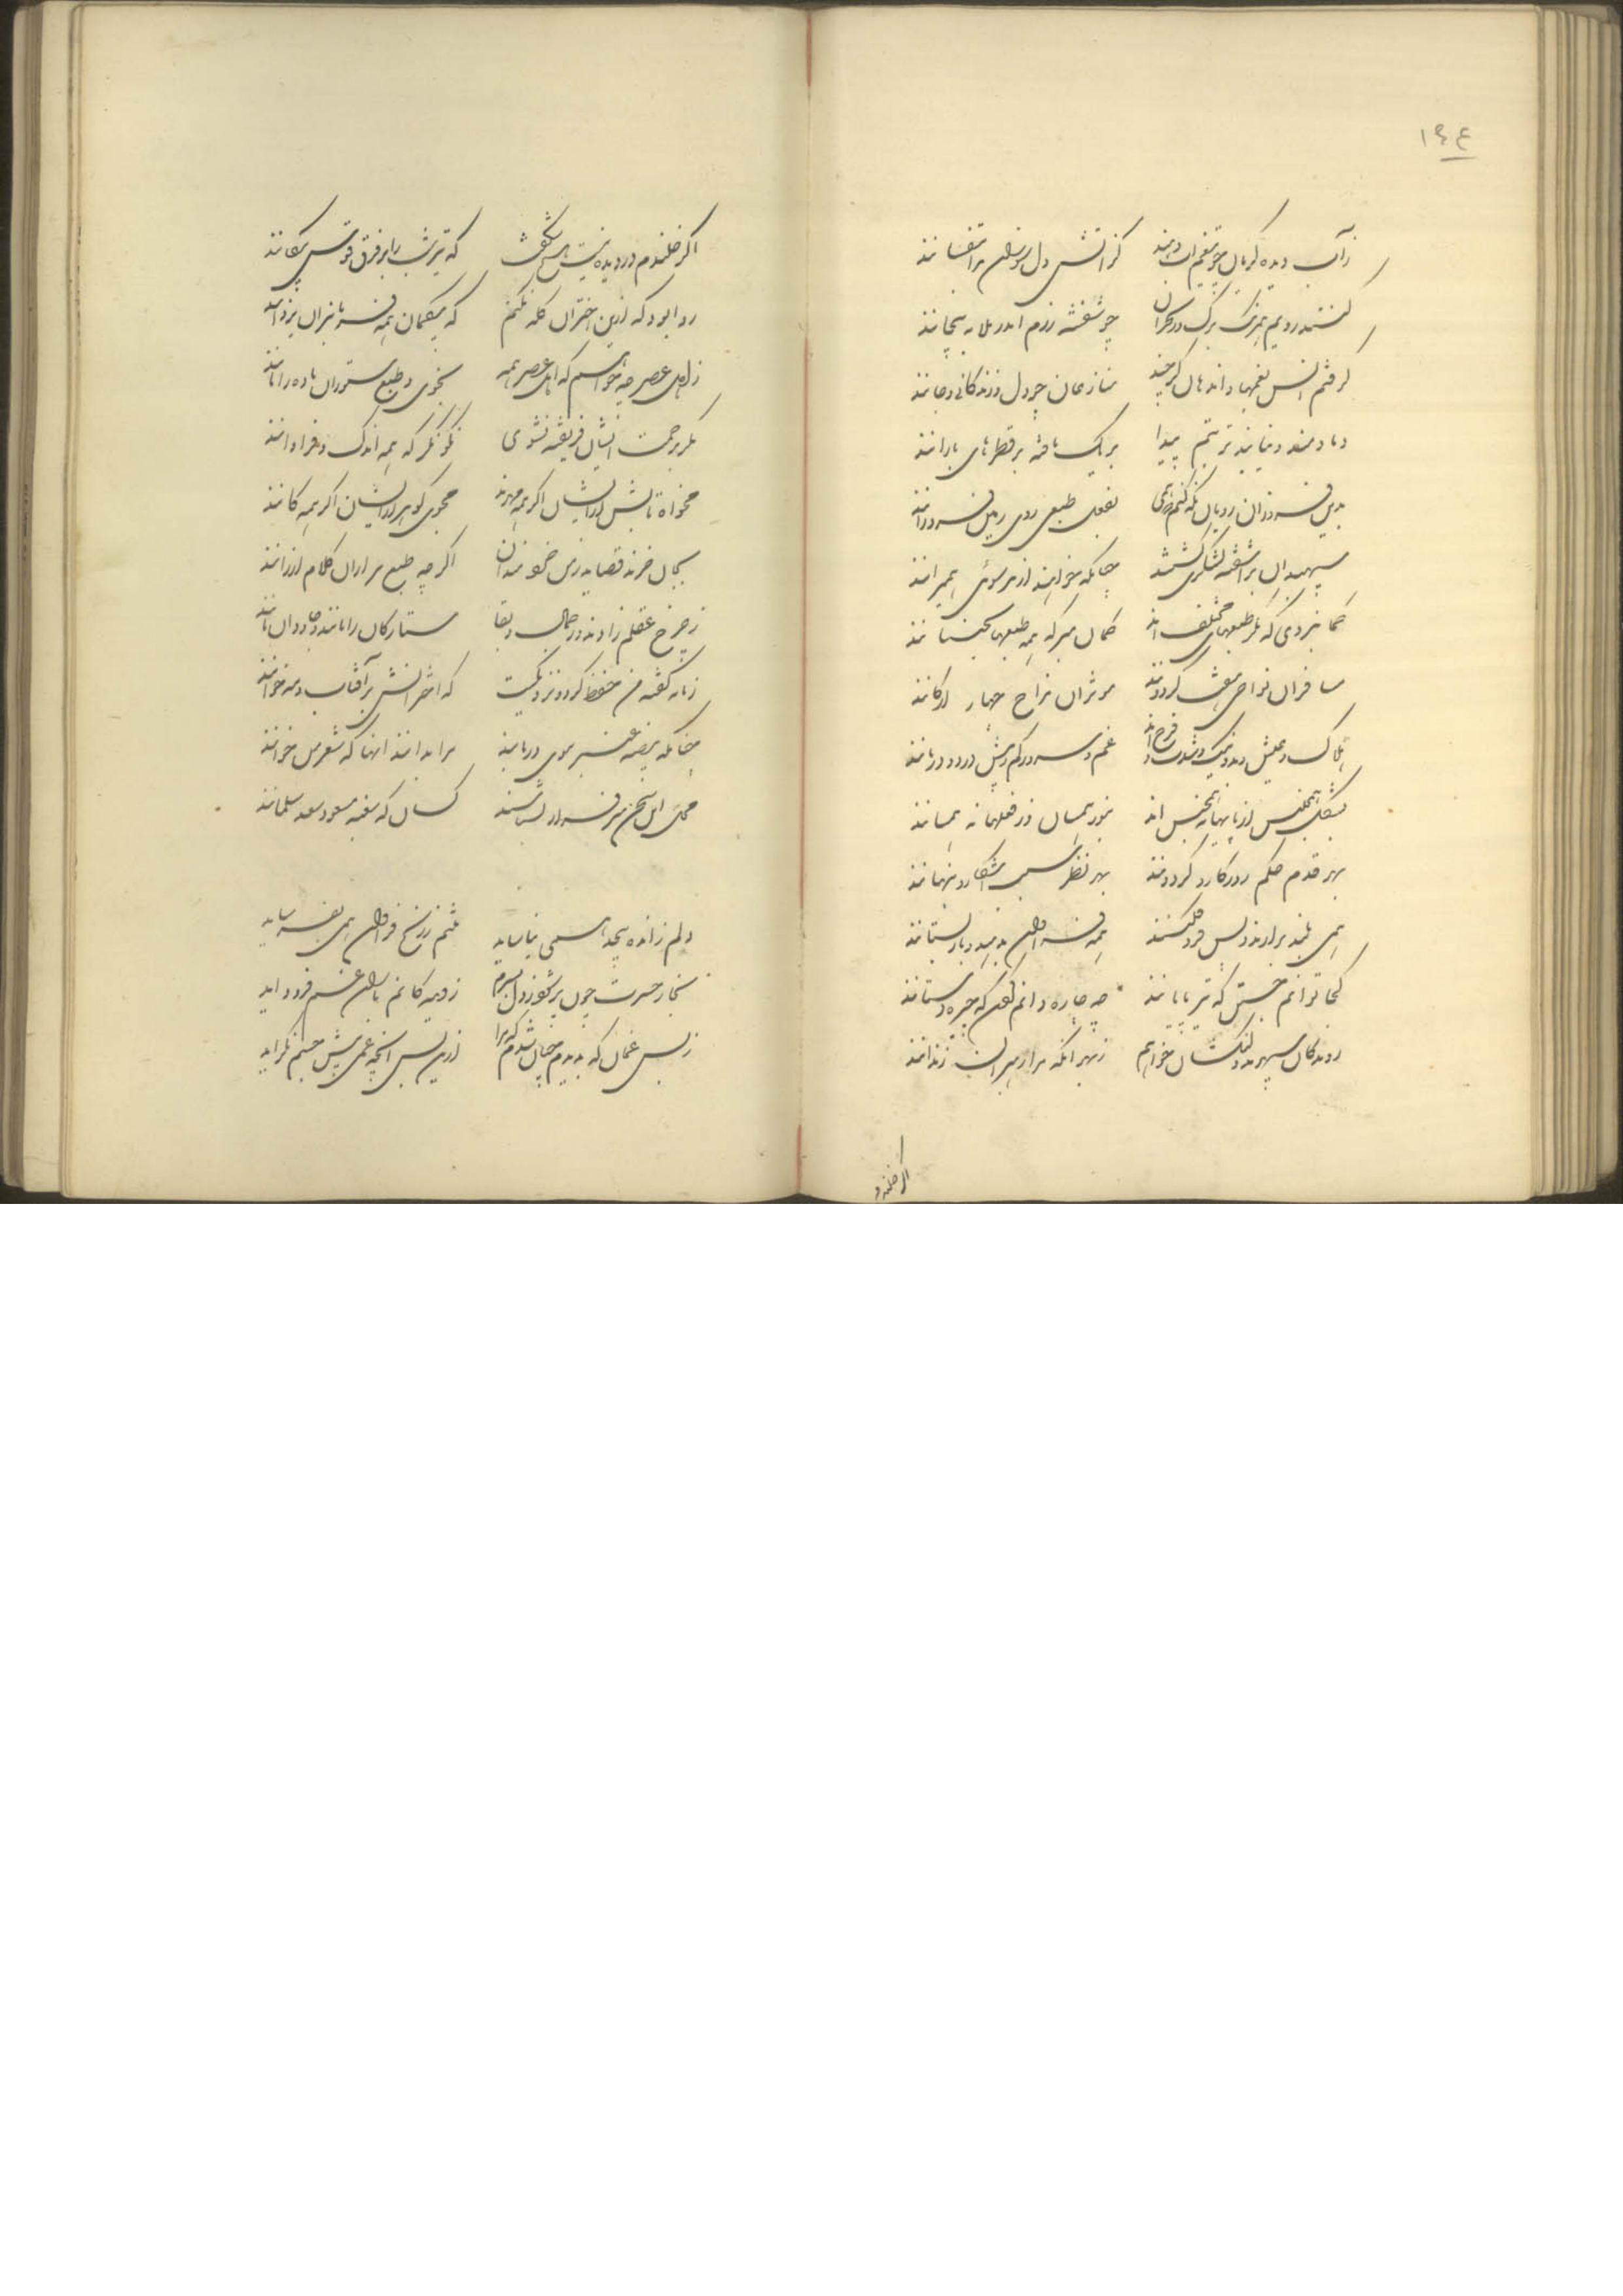 ۱۹۴
ز آب دیده گریان چو تیغم آب دهند کز آتش دل سوزان مرا بتفسانند
رویم بزرگ چو شفشه زرم اندر بلا به پیچانند
گرفتم انس بغمها و اندهان گرچند منازعان چو دل و زندگانی و جانند
دمادمند و نیابند بر تنم پیدا بریگ تافته بر قطره‌ای بارانند
بدین فروزان رویان نگه کنم همی بفعل طبعی روی زمین فروزانند
سپهبدان برآشفته لشکری گشتند چنانکه خواهند از هر سوئی همیرانند
گمانبردی که مگر طبعهای مختلف‌اند گمان مبر که همه طبعها یکسانند
مسافران نواحی هفت گردونند موثران مزاج چهار ارکانند
هلاک و عیش و بد و نیک و شدت و فرج‌اند غم و سرور و کم و بیش و درد و درمانند
بشکل هم جنس از بابها نه هم جنس‌اند بنور همسان در فعلها نه همسانند
بهر قدم حکم روزگار و گردونند بهر نظر سبب آشکار و پنهانند
همی بلند برآرند و پس فرود فکنند همه فراوان بدهند و باز بستانند
کجا توانم جستن که تیز پایانند چه چاره دانم کردن که چیره دستانند
روندگان سپهرند لنگشان خواهم ز بهر آنکه مرا رهبران زندانند
اگر خلند و
اگر خلندم در دیده نیست هیچ شگفت که تیر شب را بر فرق قوس پیکانند
روا بود که ازین اختران گله نکنم که بیگمان همه فرمانبران یزدانند
ز اهل عصر چه خواهم که اهل عصر همه بخوی و طبع ستوران ماده را مانند
مگر برحمت ایشان فریفته نشوی نکو نگر که همه اندک و فراوانند
مخواه تابش از ایشان اگر همه مهرند مجوی گوهر از ایشان اگر همه کانند
بجان خرند قصاید ز من خردمندان اگر چه طبع مرا زان کلام ارزانند
ز چرخ عقلم زادند و در جمال و بقا ستارگان را مانند و جاودان مانند
زمانه گفته من حفظ کرد و نزدیکست که اخترانش بر آفتاب و مه خوانند
چنانکه بیضه عنبر ببوی دریابند مرا بدانند آنها که شعر من خوانند
محل این سخن سرفراز بشناسند کسان که سغبه مسعود سعد سلمانند
دلم ز انده بیحد همی نیاساید تنم ز رنج فراوان همی بفرساید
بخار حسرت چون بر شود ز دل بسرم ز دیدگانم باران غم فرود آید
ز بس غمان که بدیدم چنان شدم که مرا ازین پس آنچه غمی پیش چشم نگراید